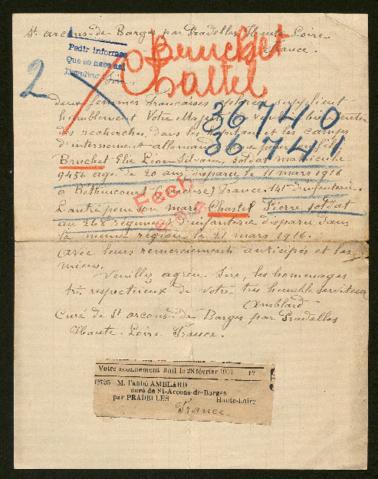 St arcons-de-Barges par Pradelles Haute-Loire
France.
Pedir informes
Que no nace así
2
Bruchet
Chastel
36740
36741
deux femmes françaises
humblement Votre Majesté
des recherches dans les et les camps
d'internement allemands
Bruchet Elie Léon soldat matricule
9434 agé de 20 ans disparu le 11 mars 1916
à Béthincourt France 141e d'infanterie.
L'autre pour son mari Chastel Pierre soldat
au 262 régiment d'infanterie disparu dans
la même région le 21 mars 1916.
avec leurs remerciements anticipés et les
miens.
Veuillez agréer Sire, les hommages
très respectueux de votre très humble serviteur
Amblard
Curé de St arcons-de-Barges par Pradelles
Haute-Loire France.
Votre abonnement finit le 28 février
M. l'abbé AMBLARD
curé de St-Arcons-de-Barges
par PRADELLES Haute-Loire
France